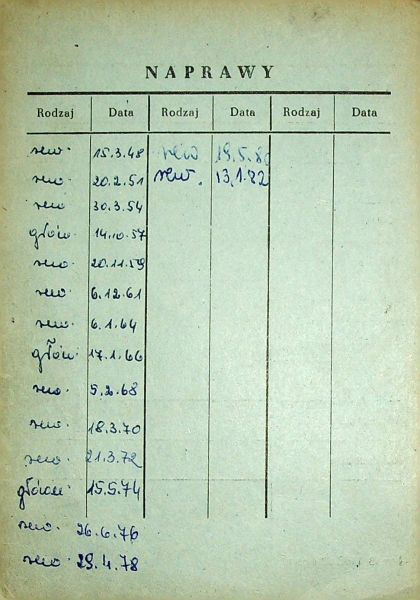 NAPRAWY
Rodzaj Data Rodzaj Data Rodzaj Data
rew. 15.3.48 rew 19.5.80
rew. 20.2.51 rew. 13.1.82
rew. 30.3.54
główn. 14.10.57
rew. 20.11.59
rew. 6.12.61
rew. 6.1.64
główn. 17.1.66
rew. 5.2.68
rew. 18.3.70
rew. 21.3.72
15.5.74
rew. 26.6.76
rew. 29.4.78